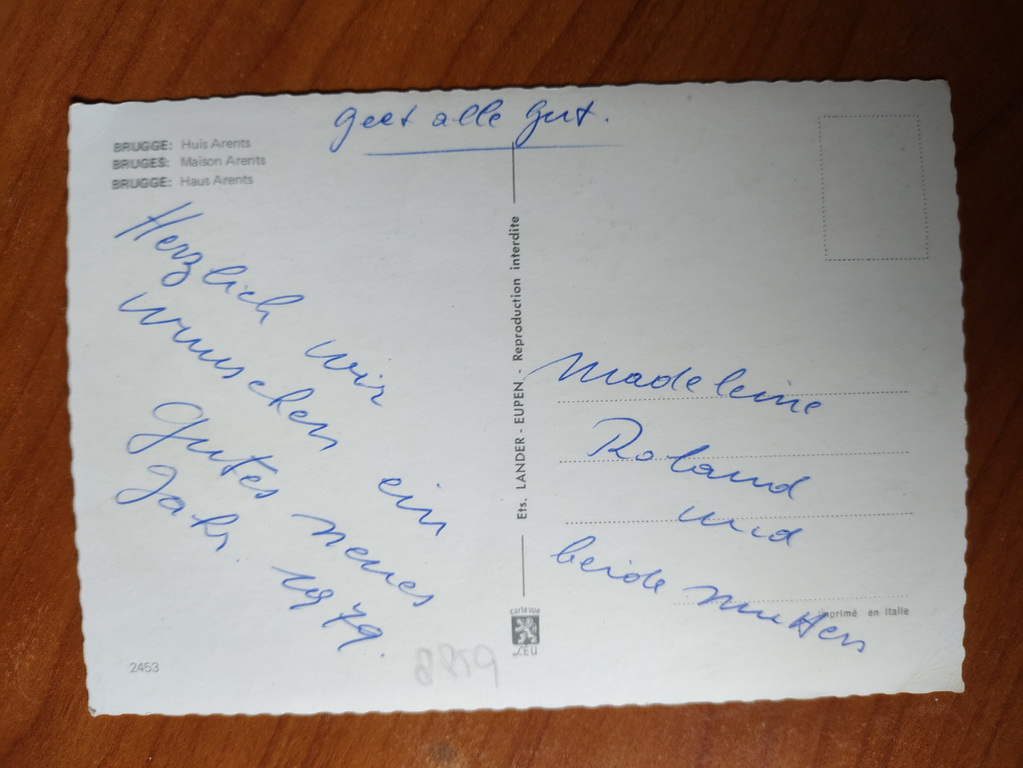 geet alle gut.
BRUGGE: Huis Arents
BRUGES: Maison Arents
BRUGGE: Haus Arents
Herzlich wir
wunschen ein
gutes neues
Jahr 1979.
2453
Ets. LANDER - EUPEN. - Reproduction interdite
carte vue
LEU
Madeleine
Roland
und
beide Muttern
Imprimé en Italie